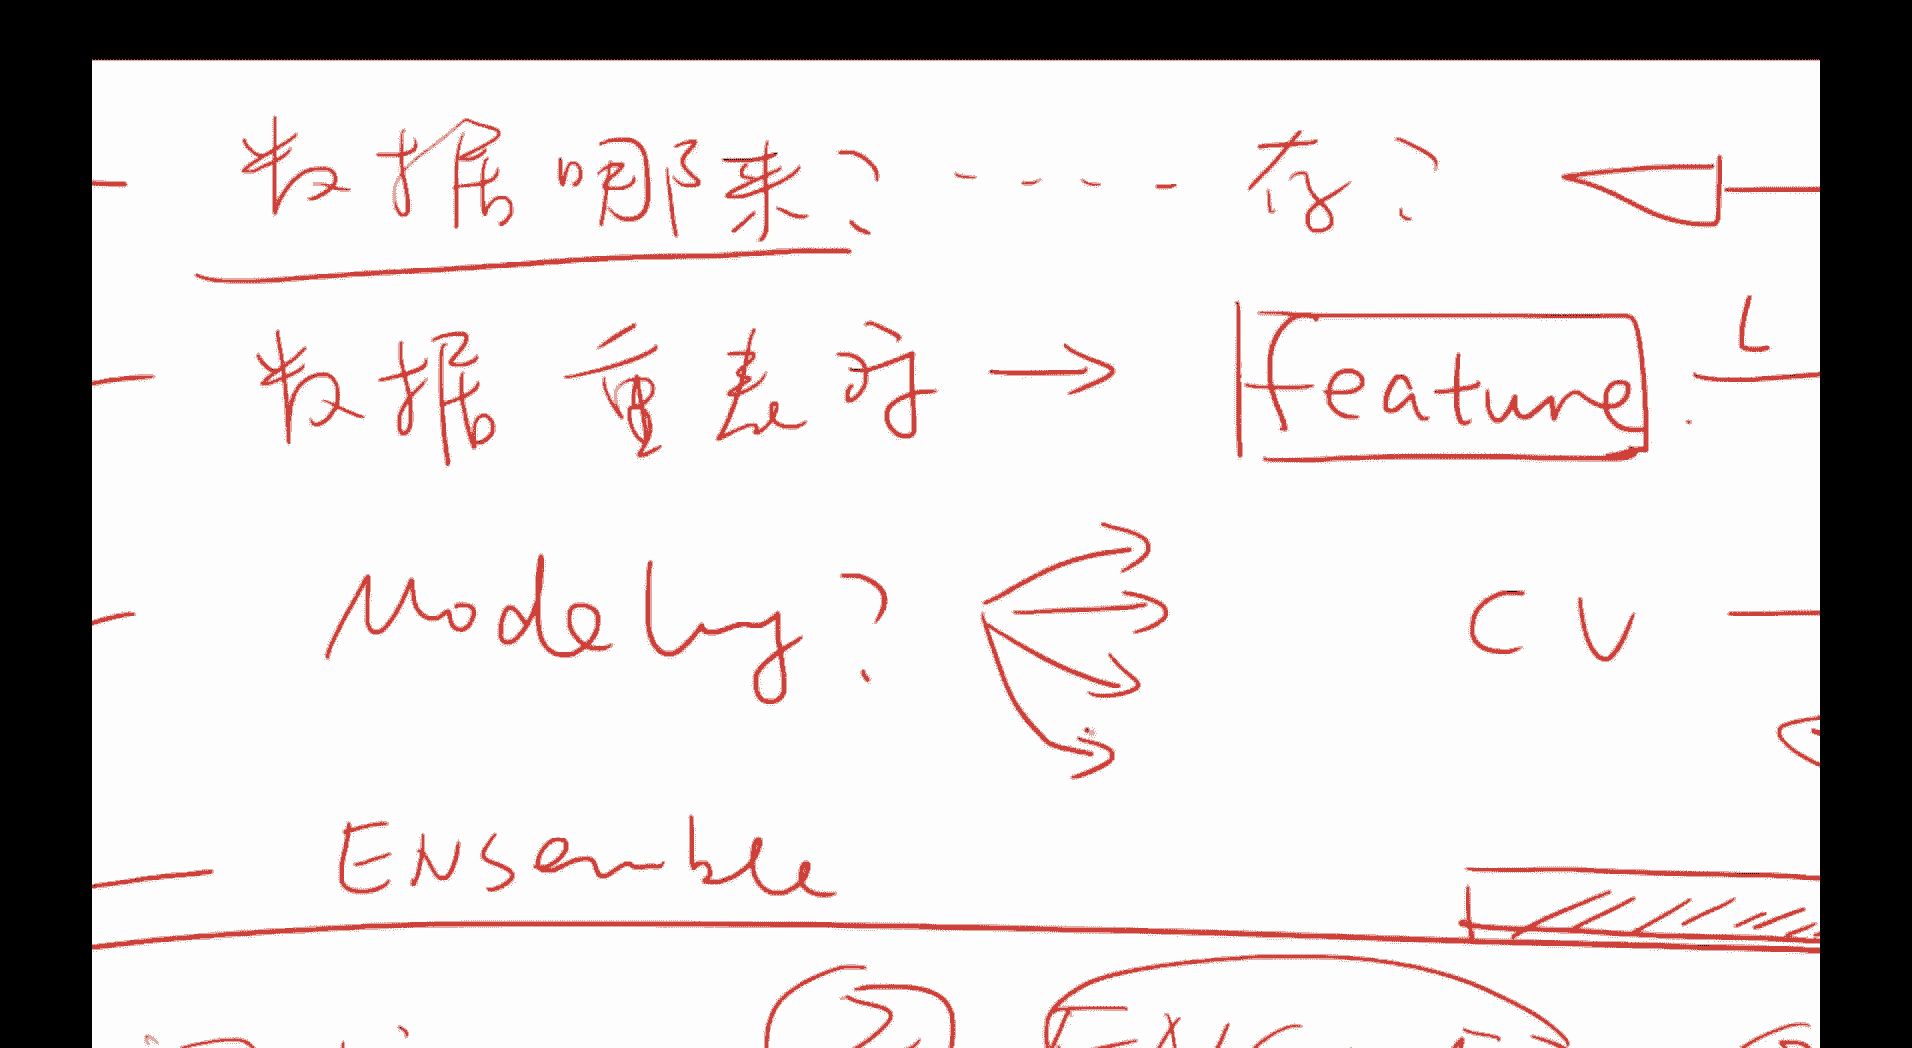 数据哪来? ----- 存?
数据 重表时 → feature. L
Modeling? CV
ENsemble